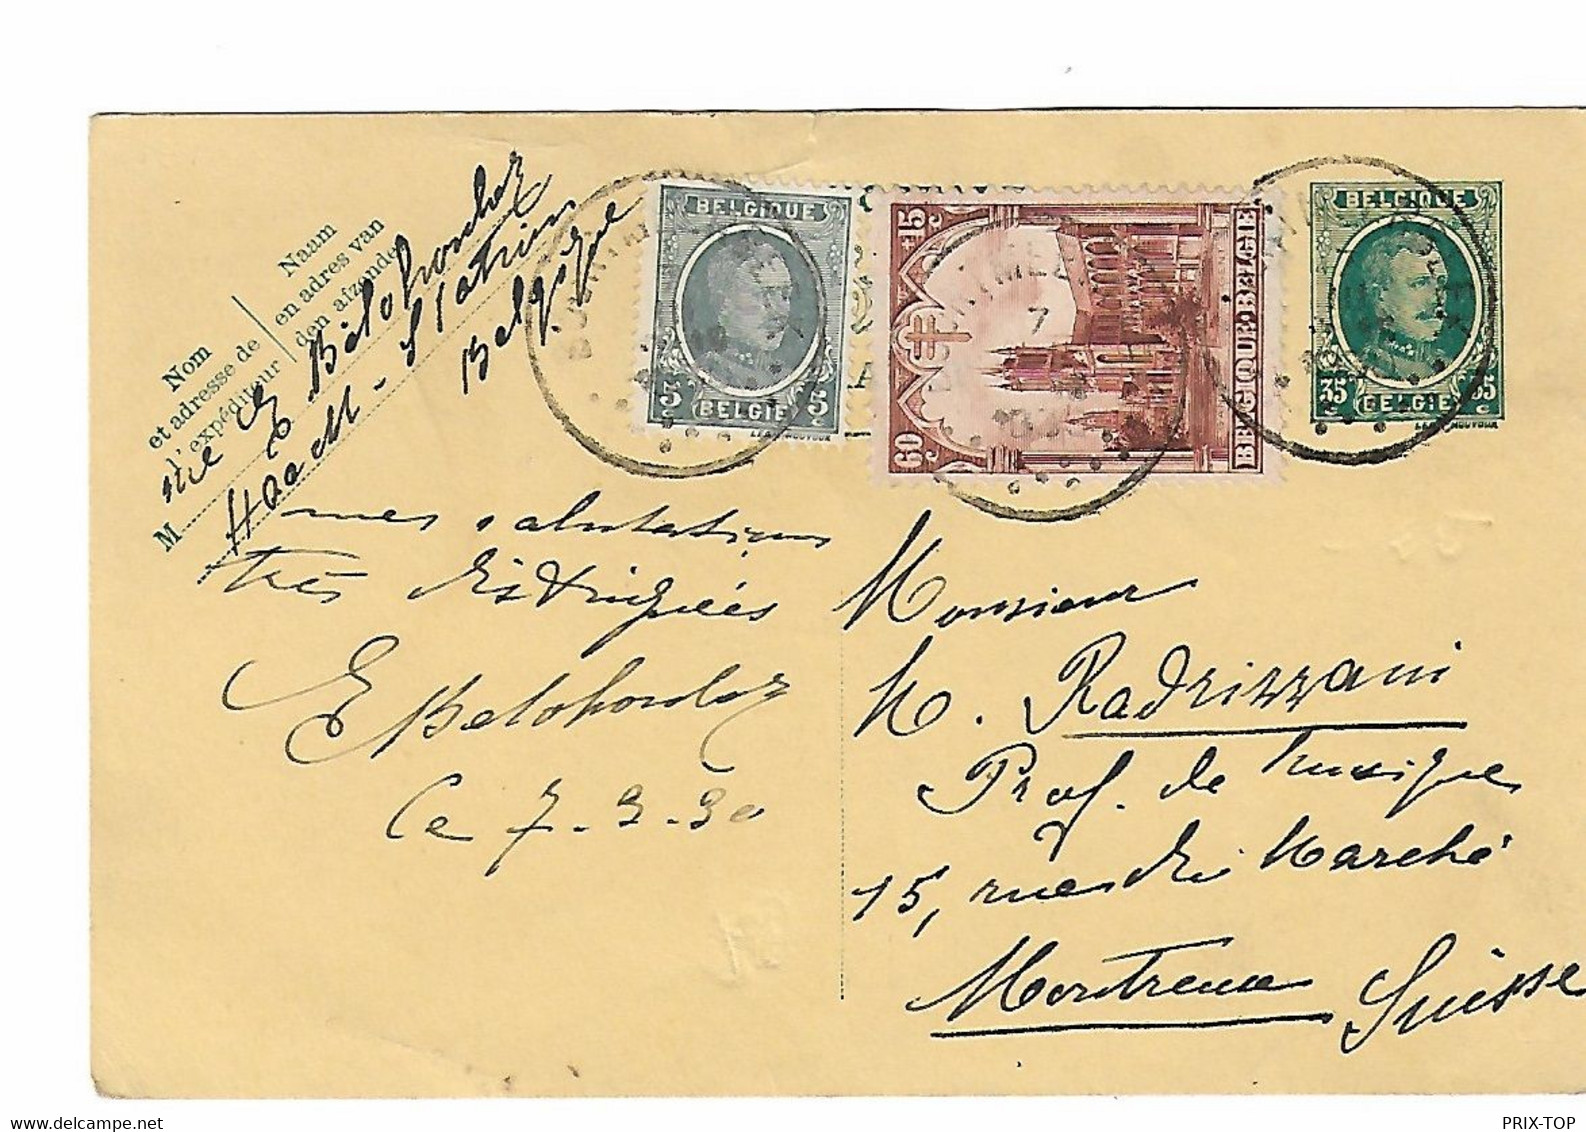 Naam
en adres van
den afzender
Nom
et adresse de
l'expéditeur
M
Haacht - Station
Belgique
BELGIQUE
5 5
BELGIE
+15
60
BELGIQUE-BELGIE
7
BELGIQUE
35 35
BELGIE
mes salutations
très distinguées
EBelohoubez
Ce 7-3-30
Monsieur
M. Radrizzani
Prof. de musique
15, rue du Marché
Montreux Suisse
PRIX-TOP